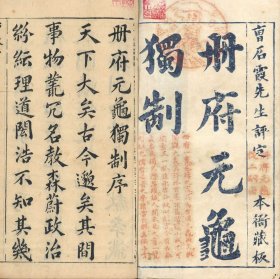 曺石霞先生評定
本衙藏板
册府元龜
獨制
册府元龜獨制序
天下大矣古今邈矣其間
事物叢冗名教森蔚政治
紛紜理道闊浩不知其幾